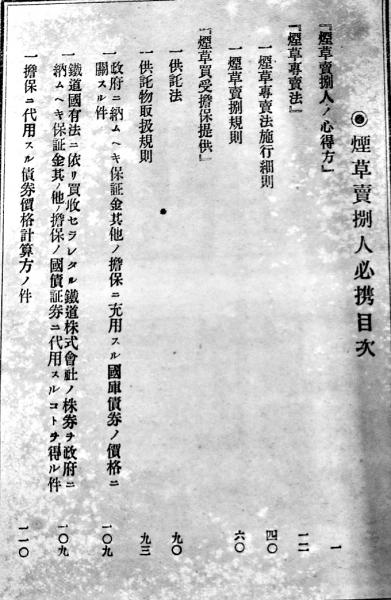 ◉煙草賣捌人必携目次
『煙草賣捌人ノ心得方』 一
『煙草專賣法』 一二
一煙草專賣法施行細則 四〇
一煙草賣捌規則 六〇
『煙草買受擔保提供』
一供託法 九〇
一供託物取扱規則 九三
一政府ニ納ムヘキ保証金其他ノ擔保ニ充用スル國庫債券ノ價格ニ
關スル件 一〇九
一鐵道國有法ニ依リ買收セラレタル鐵道株式會社ノ株券ヲ政府ニ
納ムヘキ保証金其ノ他ノ擔保ノ國債証券ニ代用スルコトヲ得ル件 一〇九
一擔保ニ代用スル債券價格計算方ノ件 一一〇